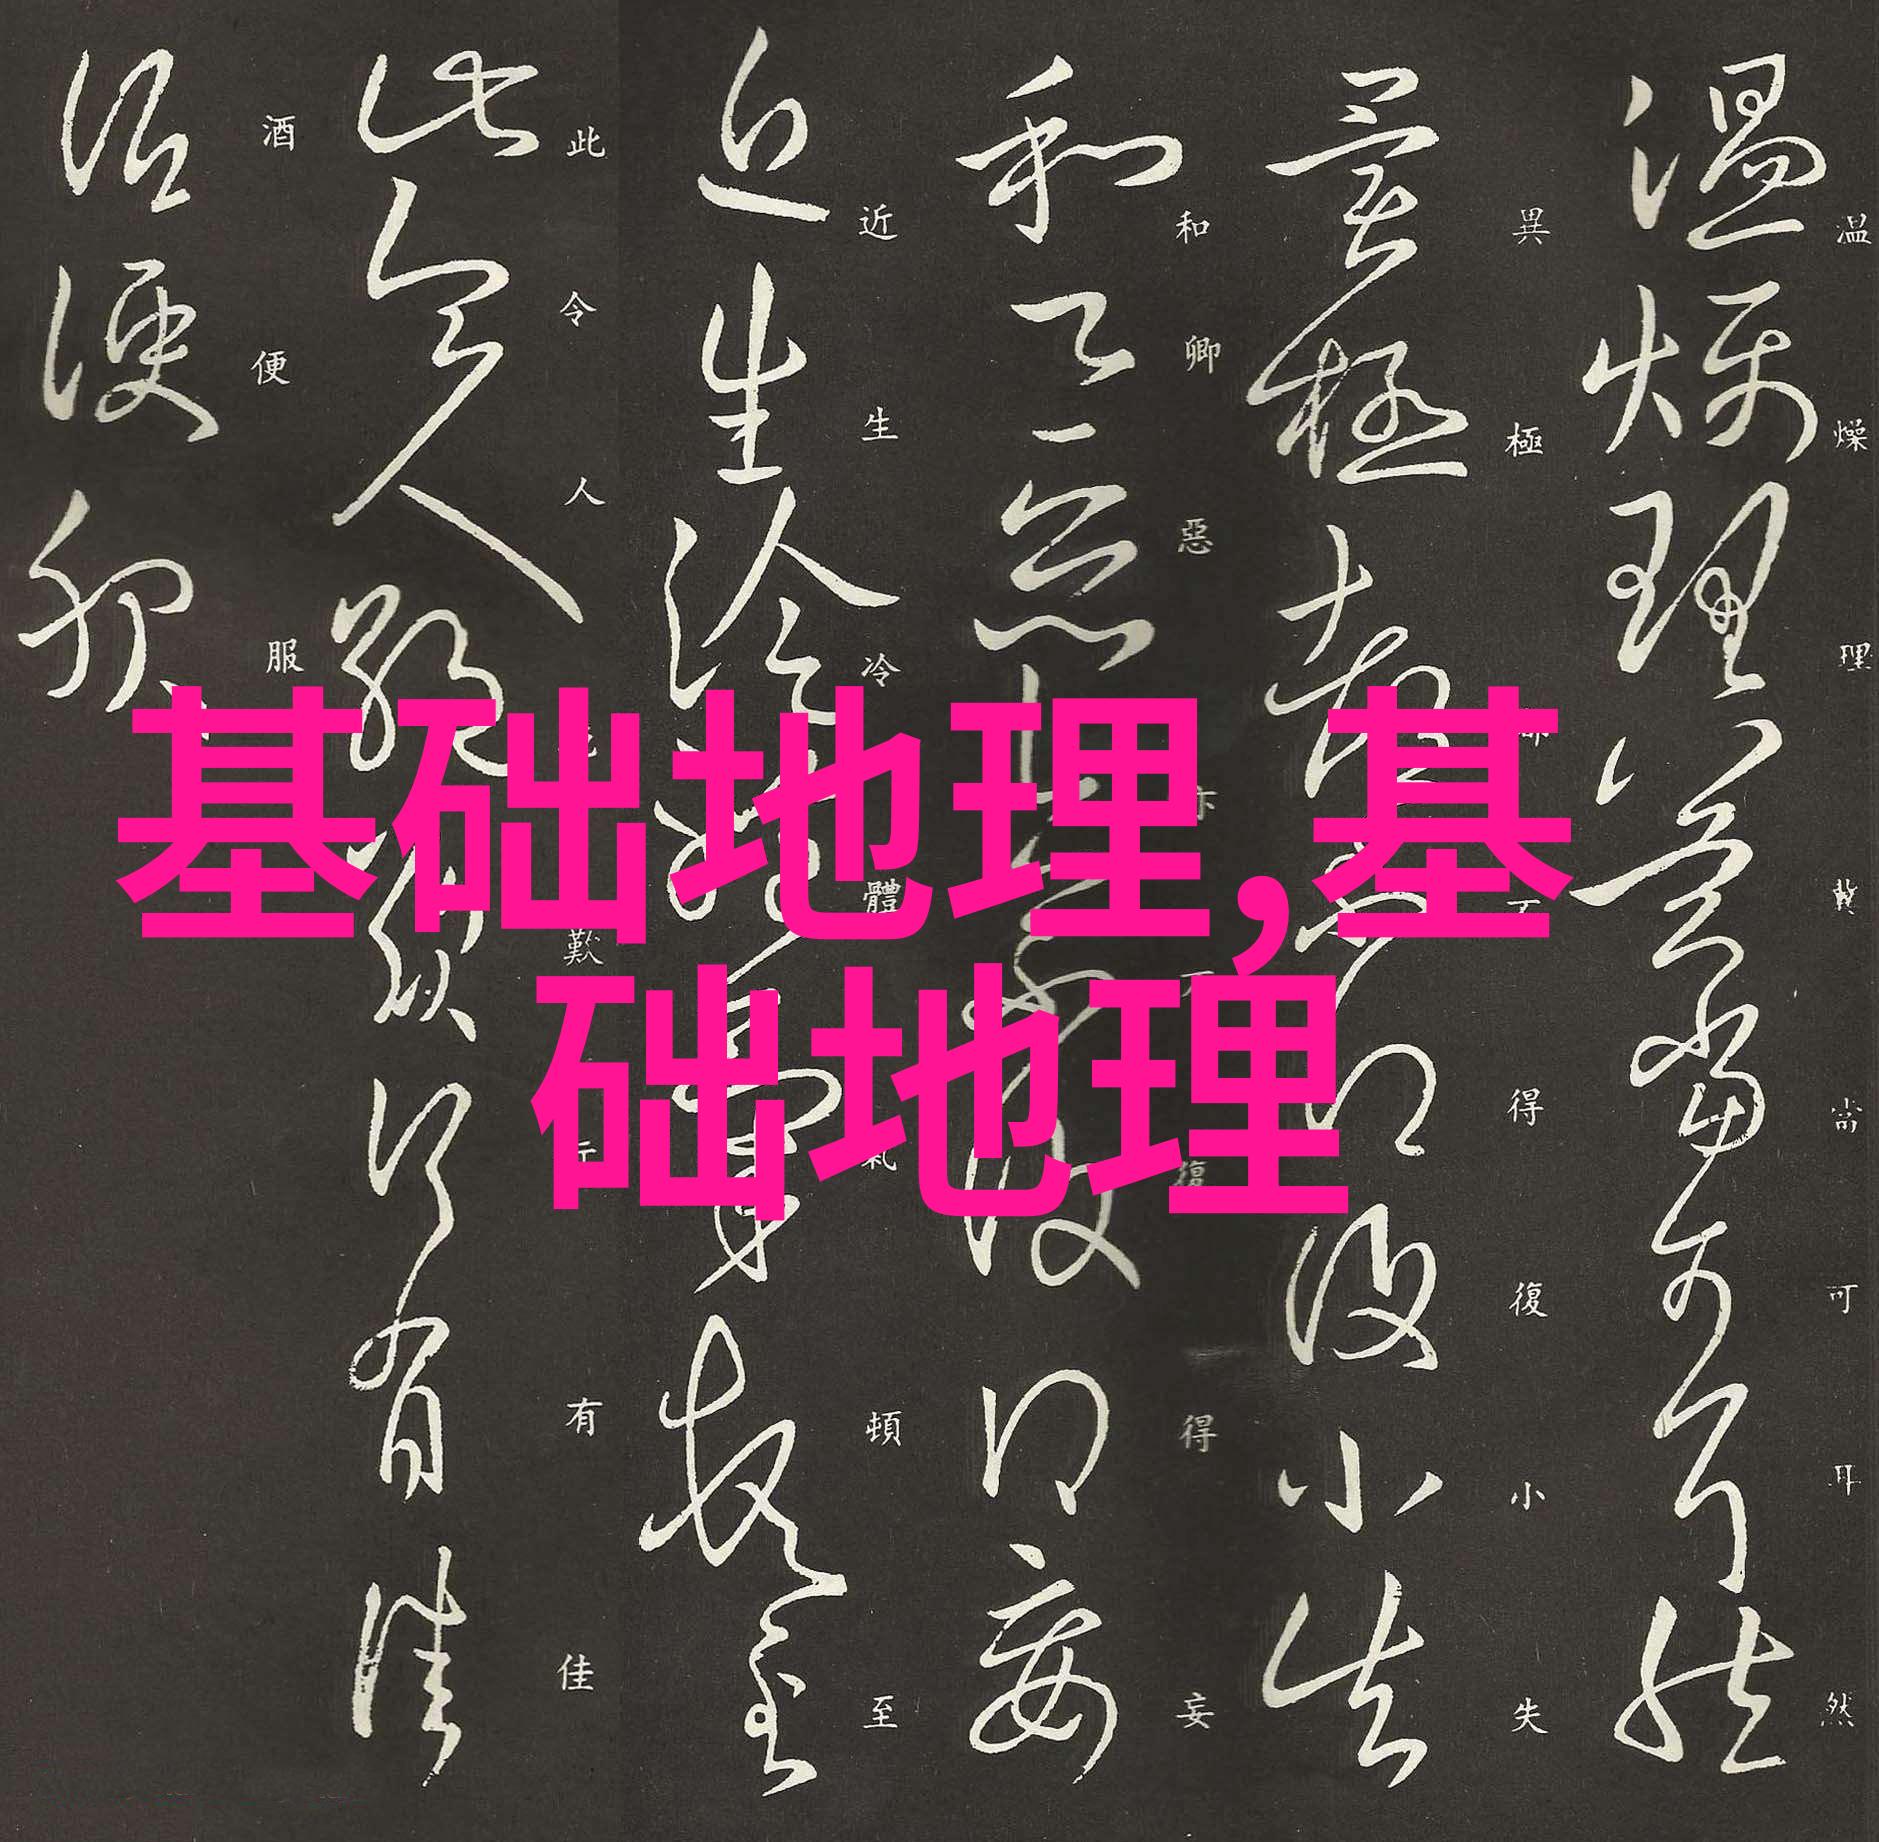 基础地理,基
础地理
温燥理冀當可耳然
異極都不得復小失
和卿惡亦不復得妄
近生冷體氣頓至
此令人歎行有佳
酒便服